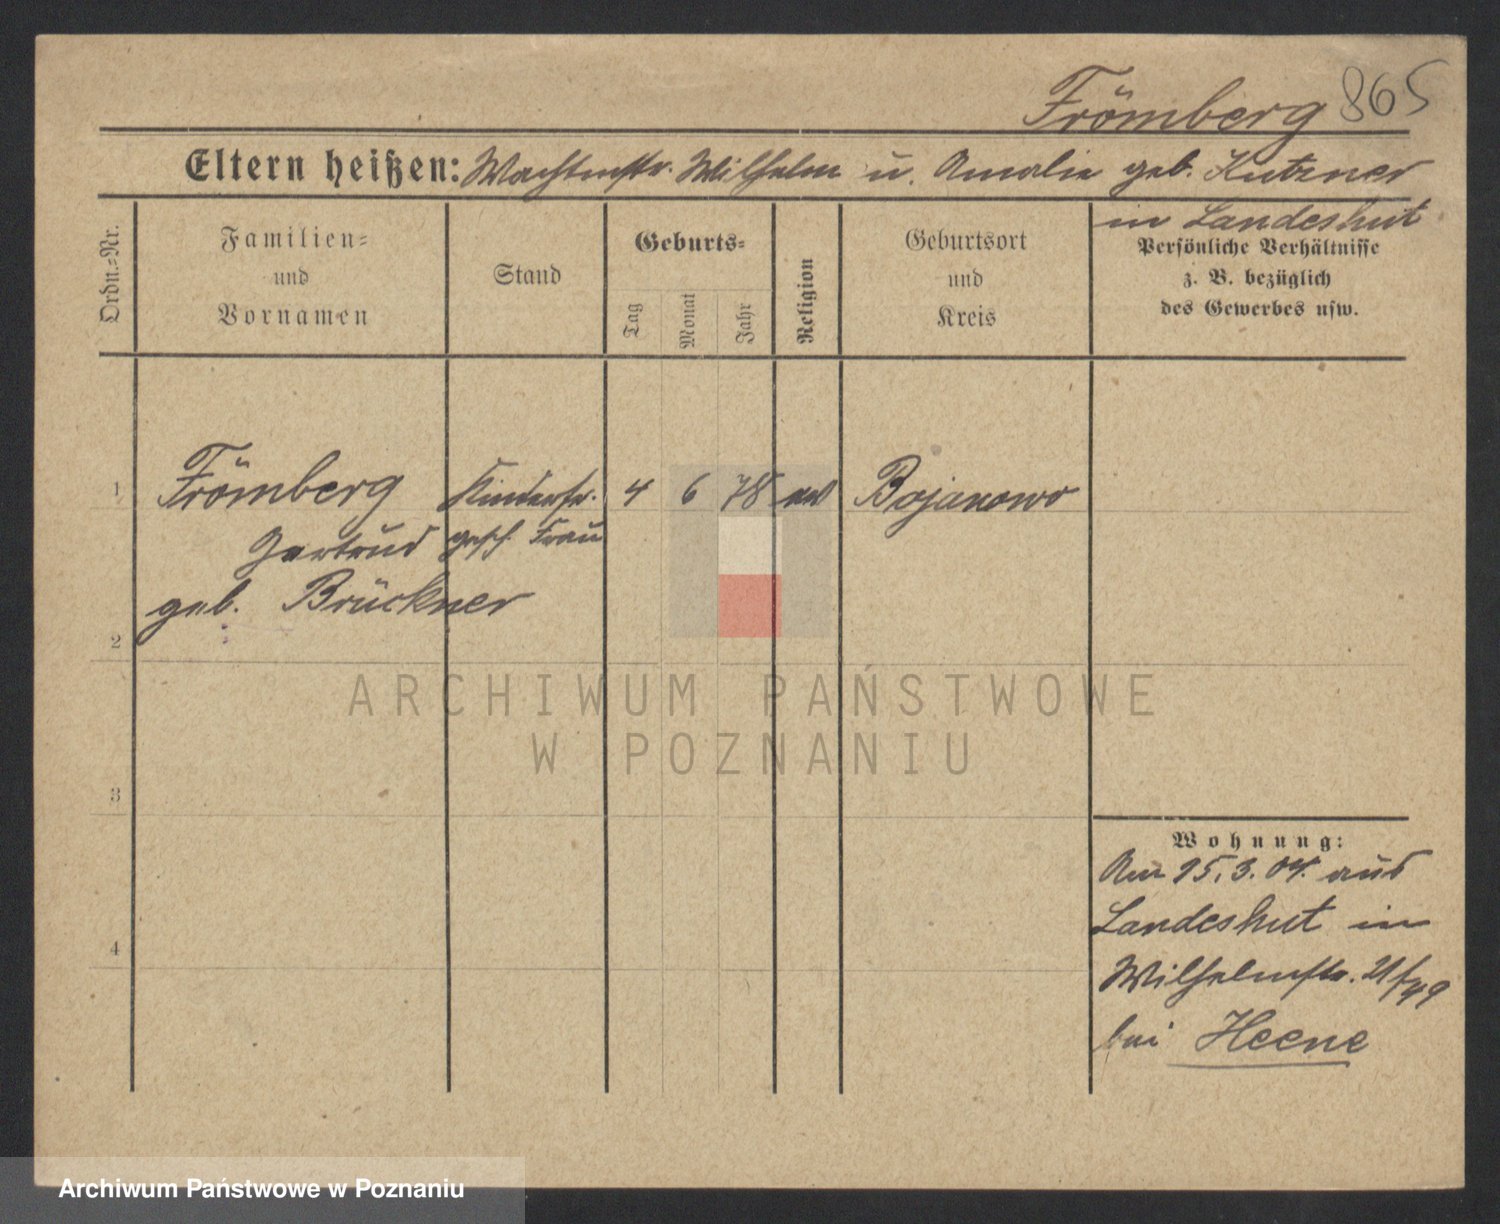 Frömberg 865
Eltern heißen: Wachtmstr. Wilhelm u. Amalie geb. Kutzner
in Landeshut
Ordn.=Nr.
Familien=
und
Vornamen
Stand
Geburts=
Tag
Monat
Jahr
Religion
Geburtsort
und
Kreis
Persönliche Verhältnisse
z. B. bezüglich
des Gewerbes usw.
1 Frömberg Kinderfr. 4 6 78 ev Bojanowo
Gertrud gesch. Frau
geb. Brückner
2
3
4
Wohnung:
Am 15.3.04. aus
Landeshut in
Wilhelmstr.
bei Heene
ARCHIWUM PAŃSTWOWE
W POZNANIU
Archiwum Państwowe w Poznaniu